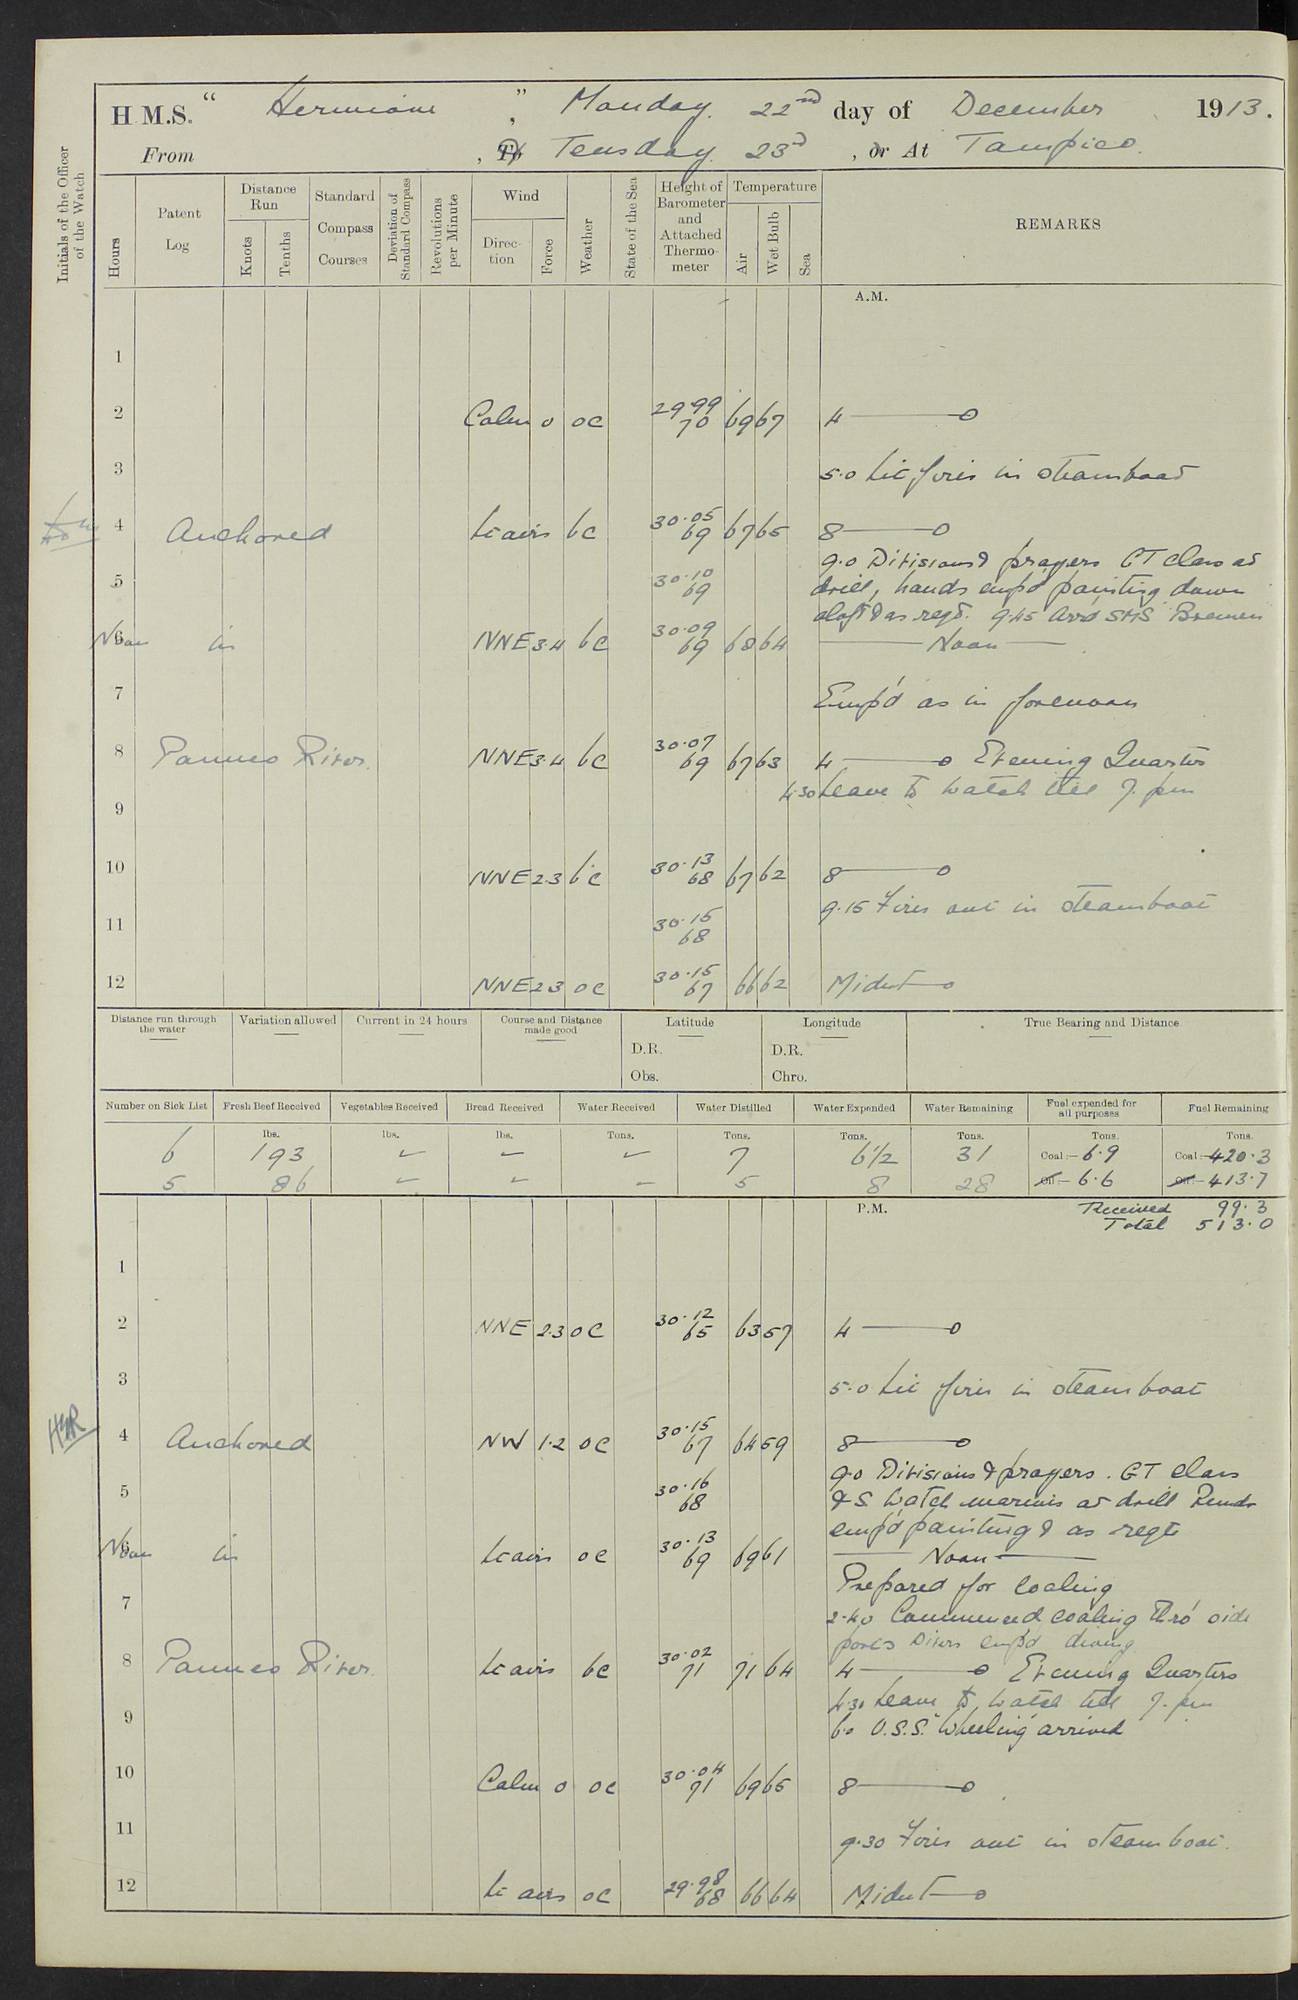 H.M.S. " Hermione ", Monday. 22nd day of December 1913.
From , To Teusday 23d , or At Tampico.
Initials of the Officer of the Watch
Hours
Patent Log
Distance Run
Knots
Tenths
Standard Compass Courses
Deviation of Standard Compass
Revolutions per Minute
Wind
Direction
Force
Weather
State of the Sea
Height of Barometer and Attached Thermometer
Temperature
Air
Wet Bulb
Sea
REMARKS
A.M.
1
2 Calm 0 oc 29.99 70 69 67 4 ——o
3 5.0 Lit fires in steamboat
4 Anchored Lt airs bc 30.05 69 67 65 8 ——o
9.0 Divisions & prayers GT Class at
5 30.10 69 drill, hands emp'd painting down
aloft & as reqd. 9.45 Arrd SMS Bremen
6 Noon in NNE 3.4 bc 30.09 69 68 64 —— Noon ——
7 Emp'd as in forenoon
8 Panuco River. NNE 3.4 bc 30.07 69 67 63 4 ——o Evening Quarters
4.30 Leave to watch till 7. pm
9
10 NNE 2.3 bc 30.13 68 67 62 8 ——o
9.15 Fires out in steamboat
11 30.15 68
12 NNE 2.3 oc 30.15 67 66 62 Midnt—o
Distance run through the water
Variation allowed
Current in 24 hours
Course and Distance made good
Latitude
D.R.
Obs.
Longitude
D.R.
Chro.
True Bearing and Distance
Number on Sick List
Fresh Beef Received
Vegetables Received
Bread Received
Water Received
Water Distilled
Water Expended
Water Remaining
Fuel expended for all purposes
Fuel Remaining
lbs. lbs. lbs. Tons. Tons. Tons. Tons. Tons. Tons.
6 193 ✓ ✓ ✓ 7 6½ 31 Coal:— 6.9 Coal:— 420.3
5 86 ✓ ✓ ✓ 5 8 28 Oil:— 6.6 Oil:— 413.7
P.M. Received 99.3
Total 513.0
1
2 NNE 2.3 oc 30.12 65 63 57 4 ——o
3 5.0 Lit fires in steamboat
4 Anchored NW 1.2 oc 30.15 67 64 59 8 ——o
9.0 Divisions & prayers. GT Class
5 30.16 68 & S. Watch marines at drill
emp'd painting & as reqd
6 Noon in Lt airs oc 30.13 69 69 61 —— Noon ——
Prepared for coaling
7 2.40 Commenced coaling thro' side
ports Divers emp'd diving
8 Panuco River. Lt airs bc 30.02 71 71 64 4 ——o Evening Quarters
4.30 Leave to watch till 7. pm
9 6.0 U.S.S. "Wheeling" arrived
10 Calm 0 oc 30.04 71 69 65 8 ——o
11 9.30 Fires out in steamboat.
12 Lt airs oc 29.98 68 66 64 Midnt—o